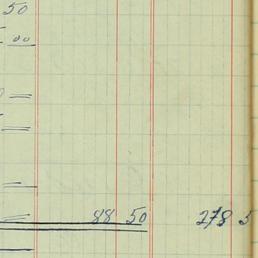 50
00
88 50 278 5